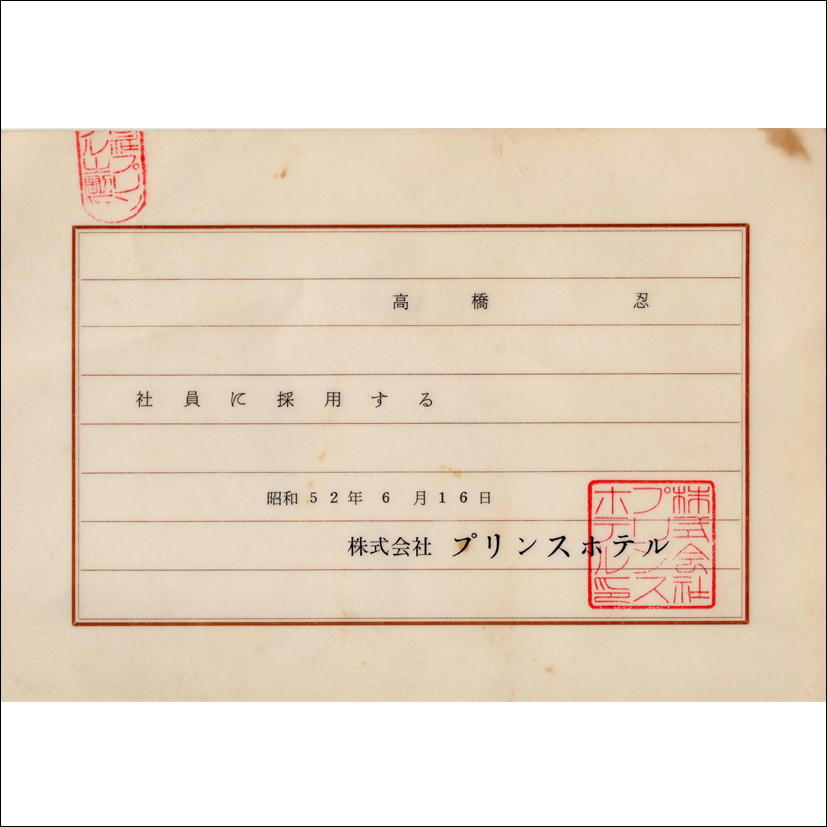 高橋 忍
社員に採用する
昭和52年6月16日
株式会社 プリンスホテル
株式会社
プリンス
ホテル印